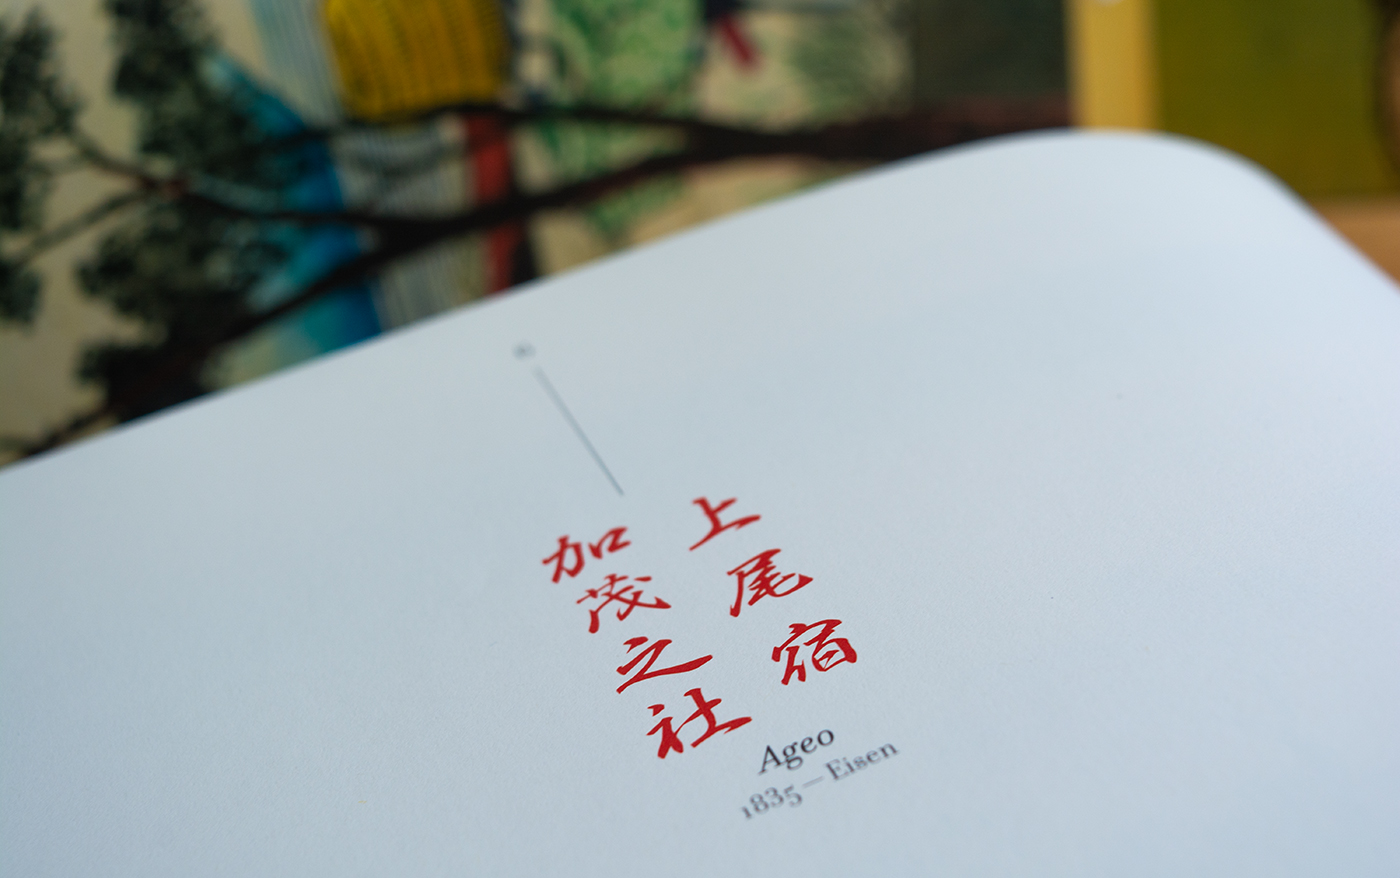 上尾宿
加茂之社
Ageo
1835—Eisen